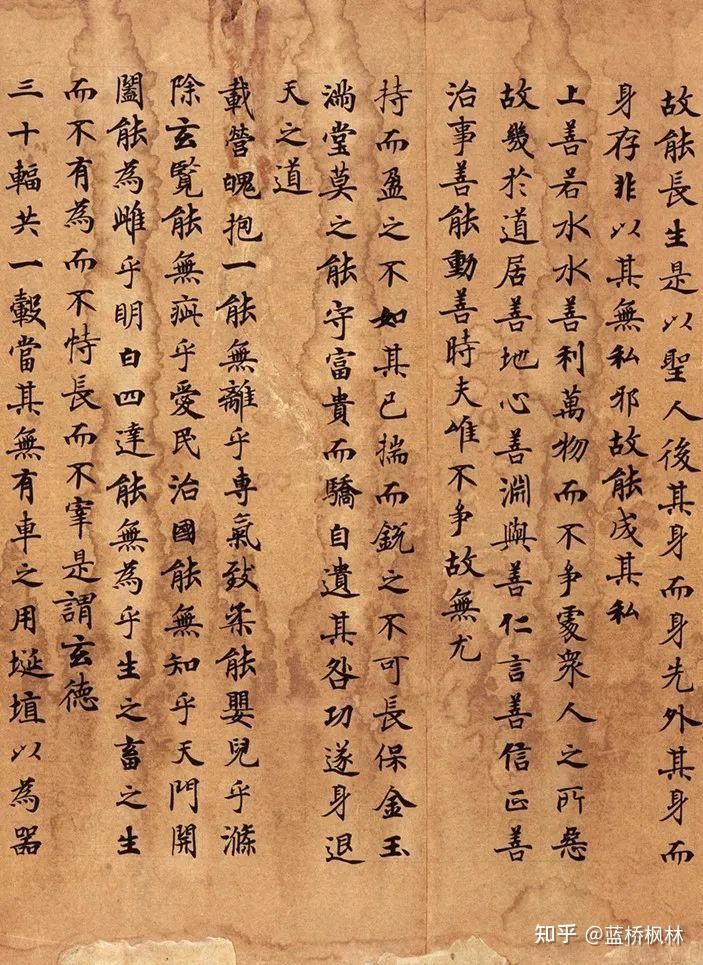 故能長生是以聖人後其身而身先外其身而
身存非以其無私邪故能成其私
上善若水水善利萬物而不爭處衆人之所惡
故幾於道居善地心善淵與善仁言善信正善
治事善能動善時夫唯不爭故無尤
持而盈之不如其已揣而銳之不可長保金玉
滿堂莫之能守富貴而驕自遺其咎功遂身退
天之道
載營魄抱一能無離乎專氣致柔能嬰兒乎滌
除玄覽能無疵乎愛民治國能無知乎天門開
闔能為雌乎明白四達能無為乎生之畜之生
而不有為而不恃長而不宰是謂玄德
三十輻共一轂當其無有車之用埏埴以為器
知乎 @蓝桥枫林